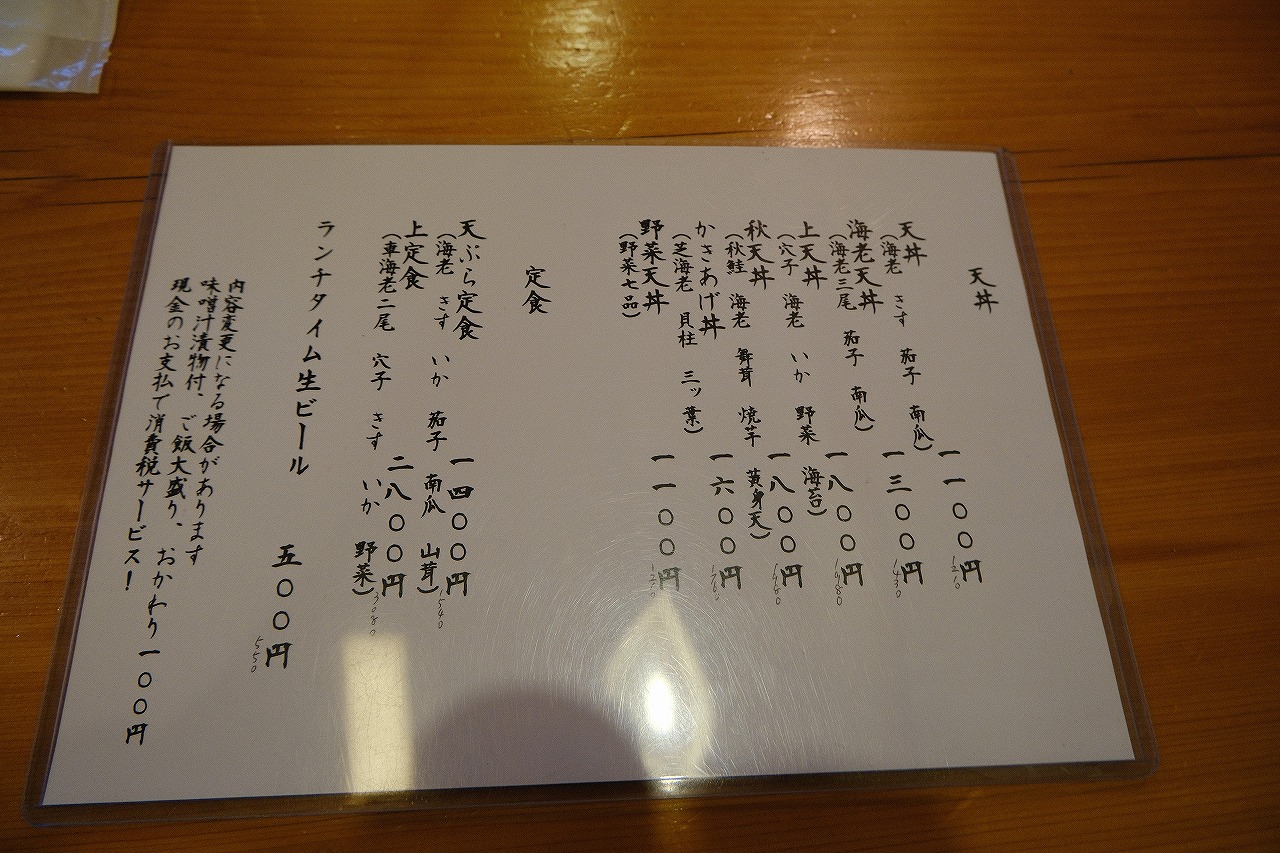 天丼
天丼 一一〇〇円 1210
(海老 きす 茄子 南瓜)
海老天丼 一三〇〇円 1430
(海老三尾 茄子 南瓜)
上天丼 一八〇〇円 1980
(穴子 海老 いか 野菜 海苔)
秋天丼 一八〇〇円 1980
(秋鮭 海老 舞茸 焼芋 黄身天)
かきあげ丼 一六〇〇円 1760
(芝海老 貝柱 三ッ葉)
野菜天丼 一一〇〇円 1210
(野菜七品)
定食
天ぷら定食 一四〇〇円 1540
(海老 きす いか 茄子 南瓜 山茸)
上定食 二八〇〇円 3080
(車海老二尾 穴子 きす いか 野菜)
ランチタイム生ビール 五〇〇円 550
内容変更になる場合があります
味噌汁漬物付、ご飯大盛り、おかわり一〇〇円
現金のお支払で消費税サービス!